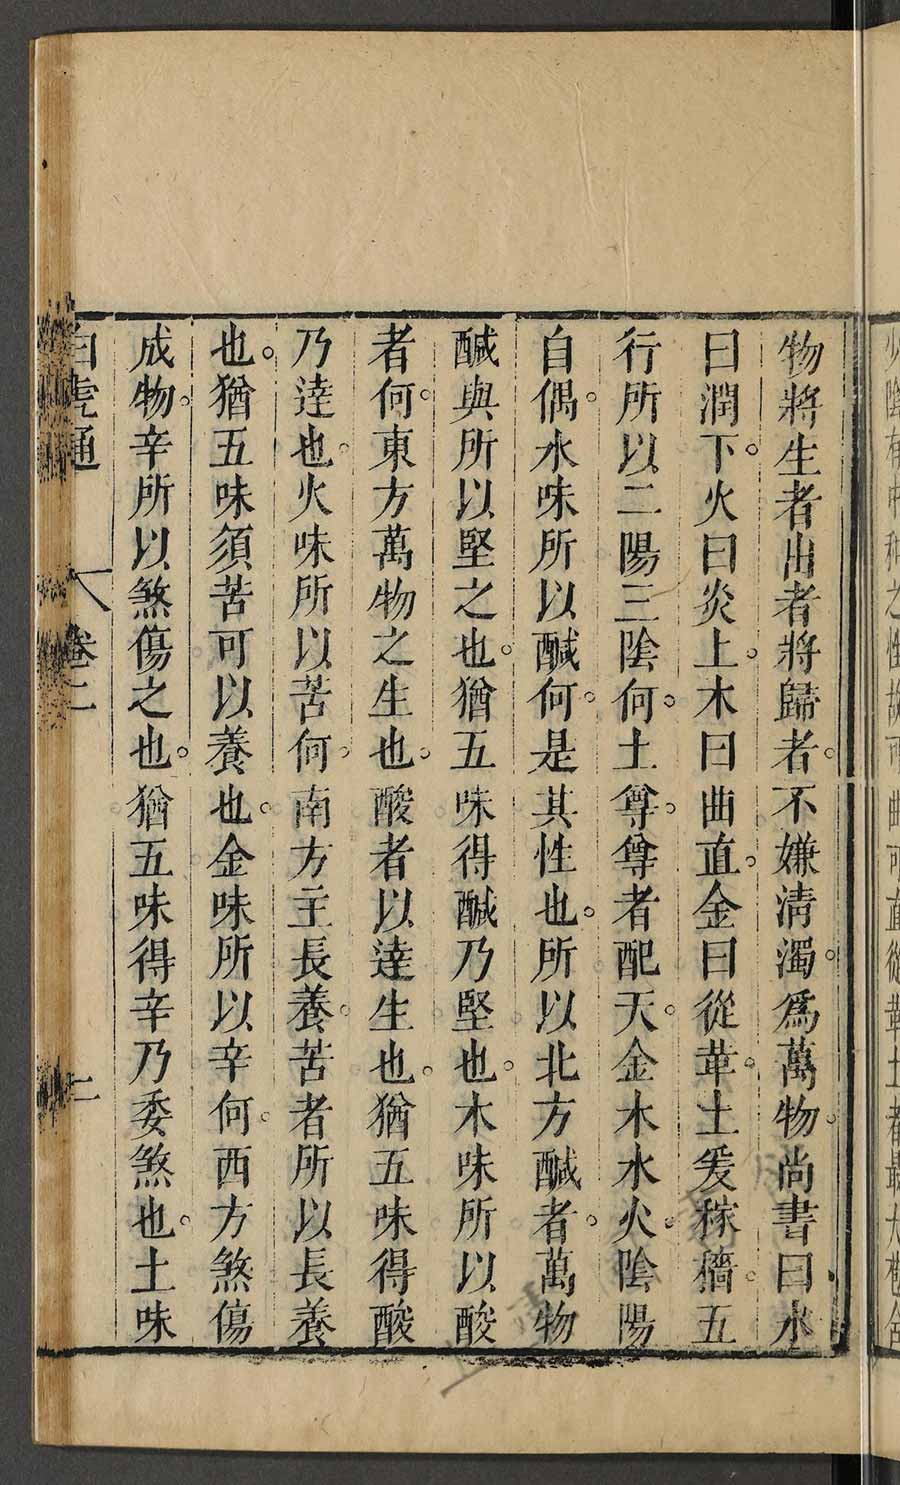 物將生者出者將歸者不嫌清濁爲萬物尚書曰水
曰潤下火曰炎上木曰曲直金曰從革土爰稼穡五
行所以二陽三陰何土尊尊者配天金木水火陰陽
自偶水味所以鹹何是其性也所以北方鹹者萬物
鹹與所以堅之也猶五味得鹹乃堅也木味所以酸
者何東方萬物之生也酸者以達生也猶五味得酸
乃達也火味所以苦何南方主長養苦者所以長養
也猶五味須苦可以養也金味所以辛何西方煞傷
成物辛所以煞傷之也猶五味得辛乃委煞也土味
白虎通 卷二